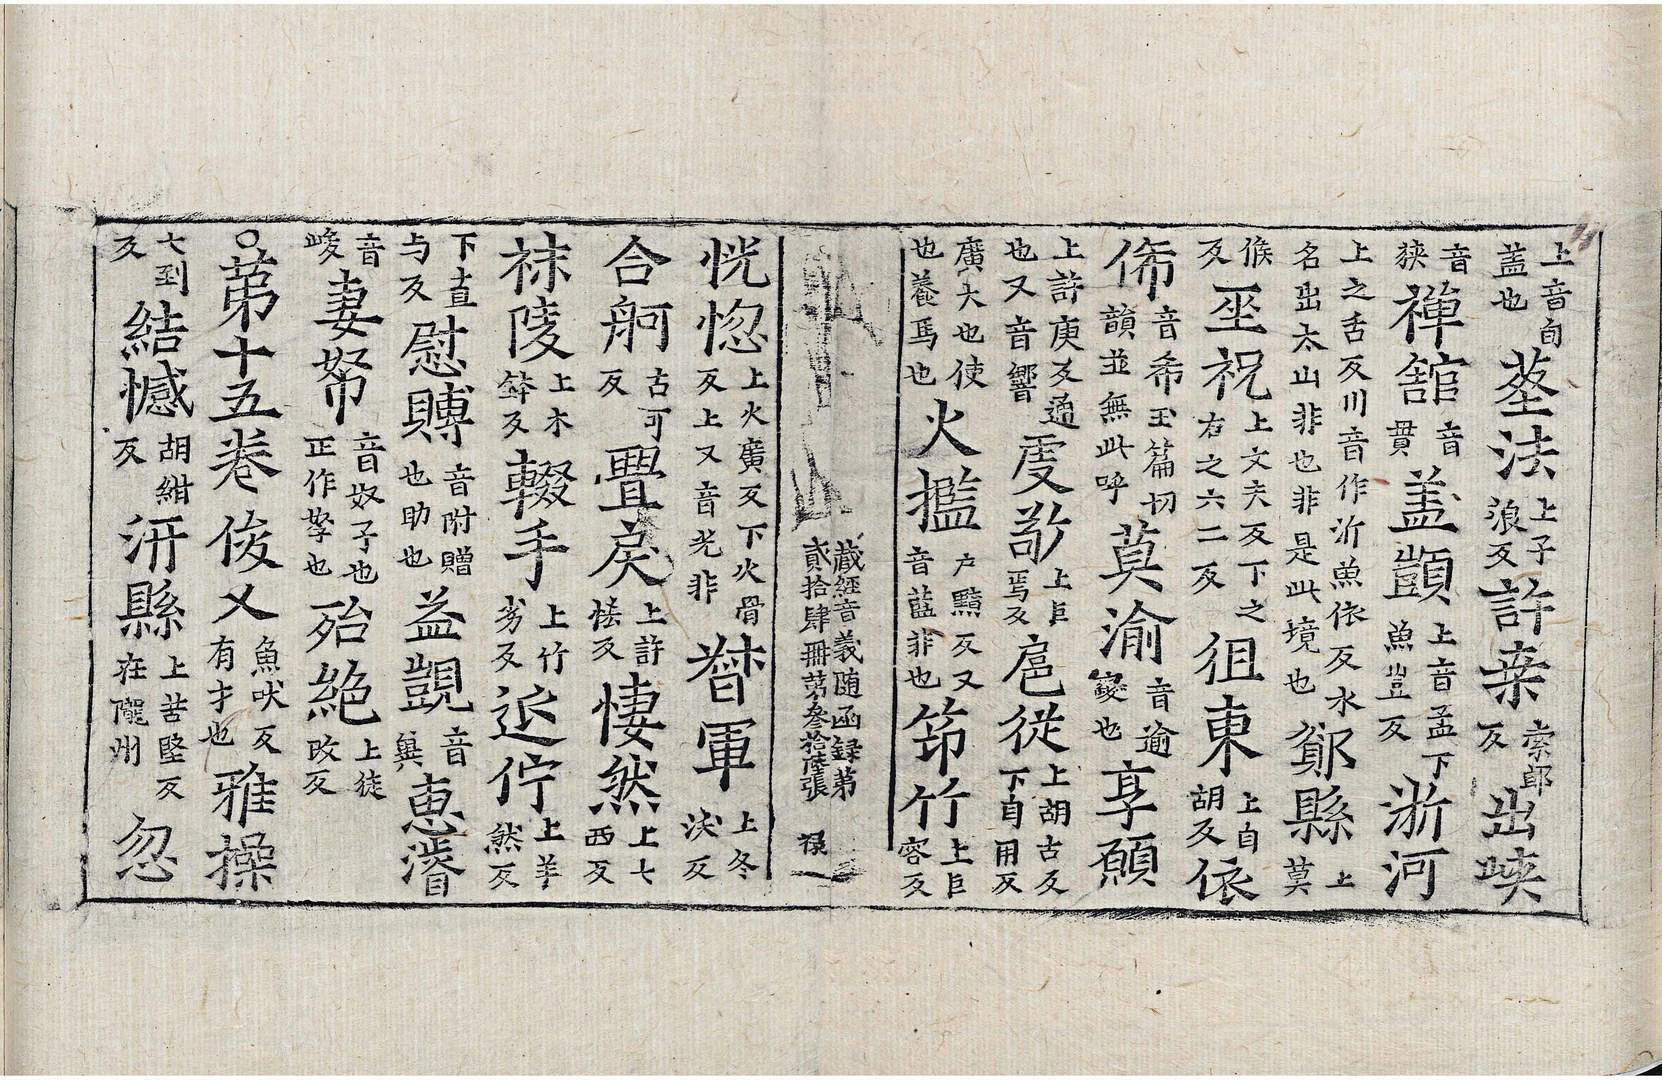 上音自盖也塟法上子浪反許桒索郎反出峽
音狹禪舘音貫盖顗上音孟下魚豈反浙河
上之舌反川音作沂魚依反水名出太山非也非是此境也鄮縣上莫
候反坐祝上文夫反下之右之六二反徂東上自胡反依
俙音希玉篇切韻並無此呼莫渝音逾變也享頋
上許庚反通也又音響虔敬上巨焉反扈從上胡古反下自用反
廣大也使也養馬也火㩜户黯反又音藍非也筇竹上巨容反
藏經音義随函録第貳拾肆冊苐叄拾陸張
恍惚上火廣反下火骨反上又音光非督軍上冬沃反
合舸古可反舋戾上許恡反悽然上七西反
秣陵上木鉢反輟手上竹劣反近佇上羊然反
下直与反慰賻音附贈也助也益覬音兾惠濬
音峻妻帑音奴子也正作孥也殆絶上徒改反
○苐十五卷俊乂魚吠反有才也雅操
七到反結憾胡紺反汧縣上苦堅反在隴州忽